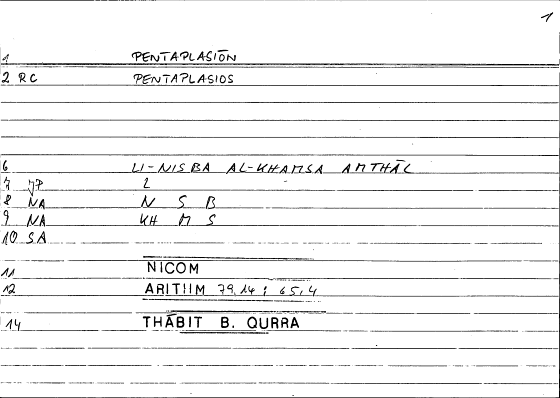 1
1 PENTAPLASIŌN
2 RC PENTAPLASIOS
6 LI-NISBA AL-KHAMSA AMTHĀL
7 JP L
8 NA N S B
9 NA KH M S
10 SA
11 NICOM
12 ARITHM 79,14 ; 65,4
14 THĀBIT B. QURRA